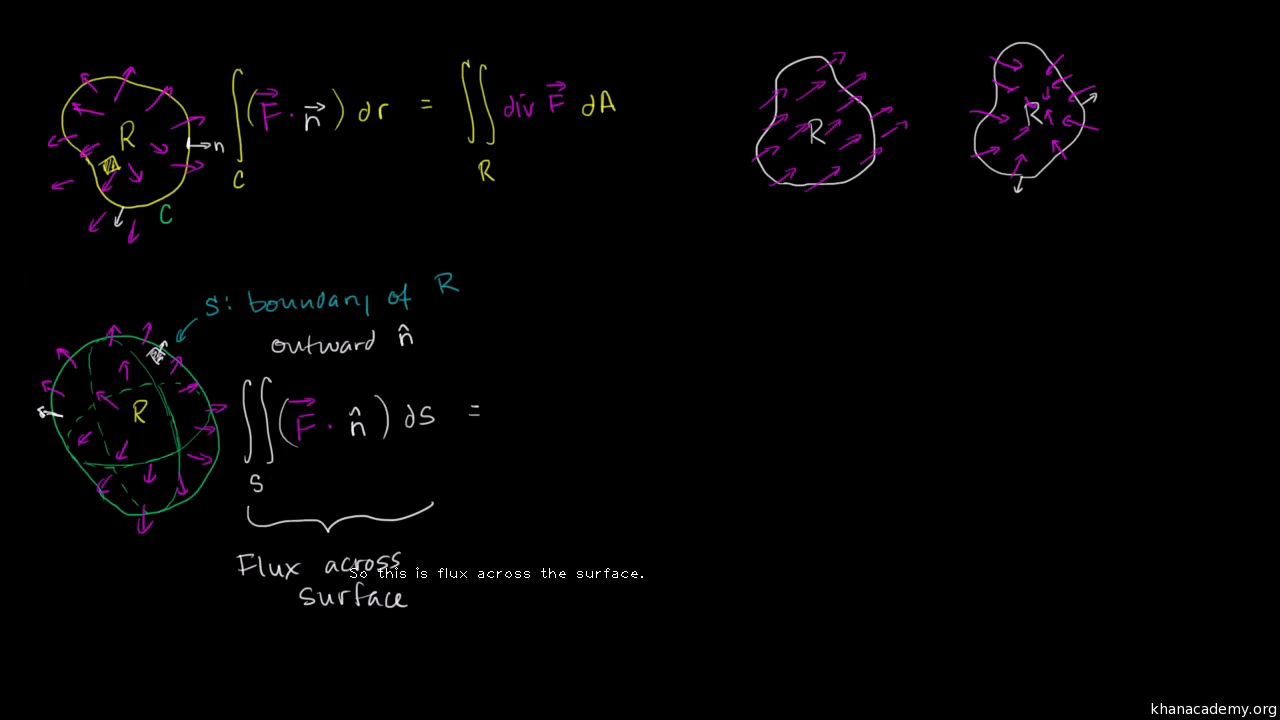 R
n
C
∫_C (F⃗ · n⃗) dr = ∬_R div F⃗ dA
R
R
S: boundary of R
outward n̂
R
∬_S (F⃗ · n̂) dS =
Flux across
surface
So this is flux across the surface.
khanacademy.org